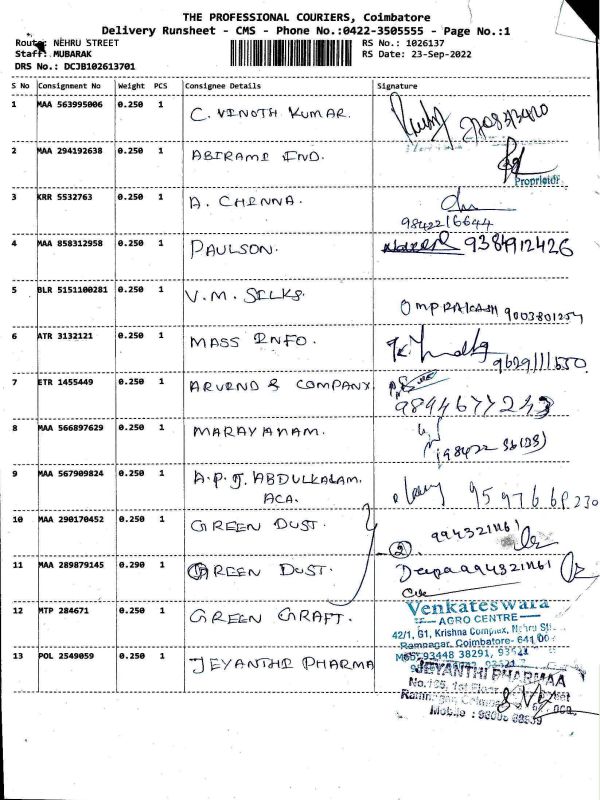 THE PROFESSIONAL COURIERS, Coimbatore
Delivery Runsheet - CMS - Phone No.:0422-3505555 - Page No.:1
Route: NEHRU STREET
Staff: MUBARAK
DRS No.: DCJB102613701
RS No.: 1026137
RS Date: 23-Sep-2022
S No Consignment No Weight PCS Consignee Details Signature
1 MAA 563995006 0.250 1 C. VINOTH KUMAR.
2 MAA 294192638 0.250 1 ABIRAMI IND.
Proprietor
3 KRR 5532763 0.250 1 A. CHENNA.
9842216644
4 MAA 858312958 0.250 1 PAULSON. 9384912426
5 BLR 5151100281 0.250 1 V.M. SILKS.
OMPRAKASH 9003801254
6 ATR 3132121 0.250 1 MASS INFO.
9629111550
7 ETR 1455449 0.250 1 ARVIND & COMPANY
9894677243
8 MAA 566897629 0.250 1 NARAYANAM.
9 MAA 567909824 0.250 1 A.P.J. ABDULKALAM.
ACA.
10 MAA 290170452 0.250 1 GREEN DUST.
2 9943211161
11 MAA 289879145 0.290 1 GREEN DUST. Deepa 9943211161
12 MTP 284671 0.250 1 GREEN GRAFT.
Venkateswara
AGRO CENTRE
42/1, G1, Krishna Complex, Nehru St
Ramnagar, Coimbatore- 641 00
93448 38291,
13 POL 2549059 0.250 1 JEYANTHI PHARMA
JEYANTHI PHARMAA
1st Floor
Mobile :